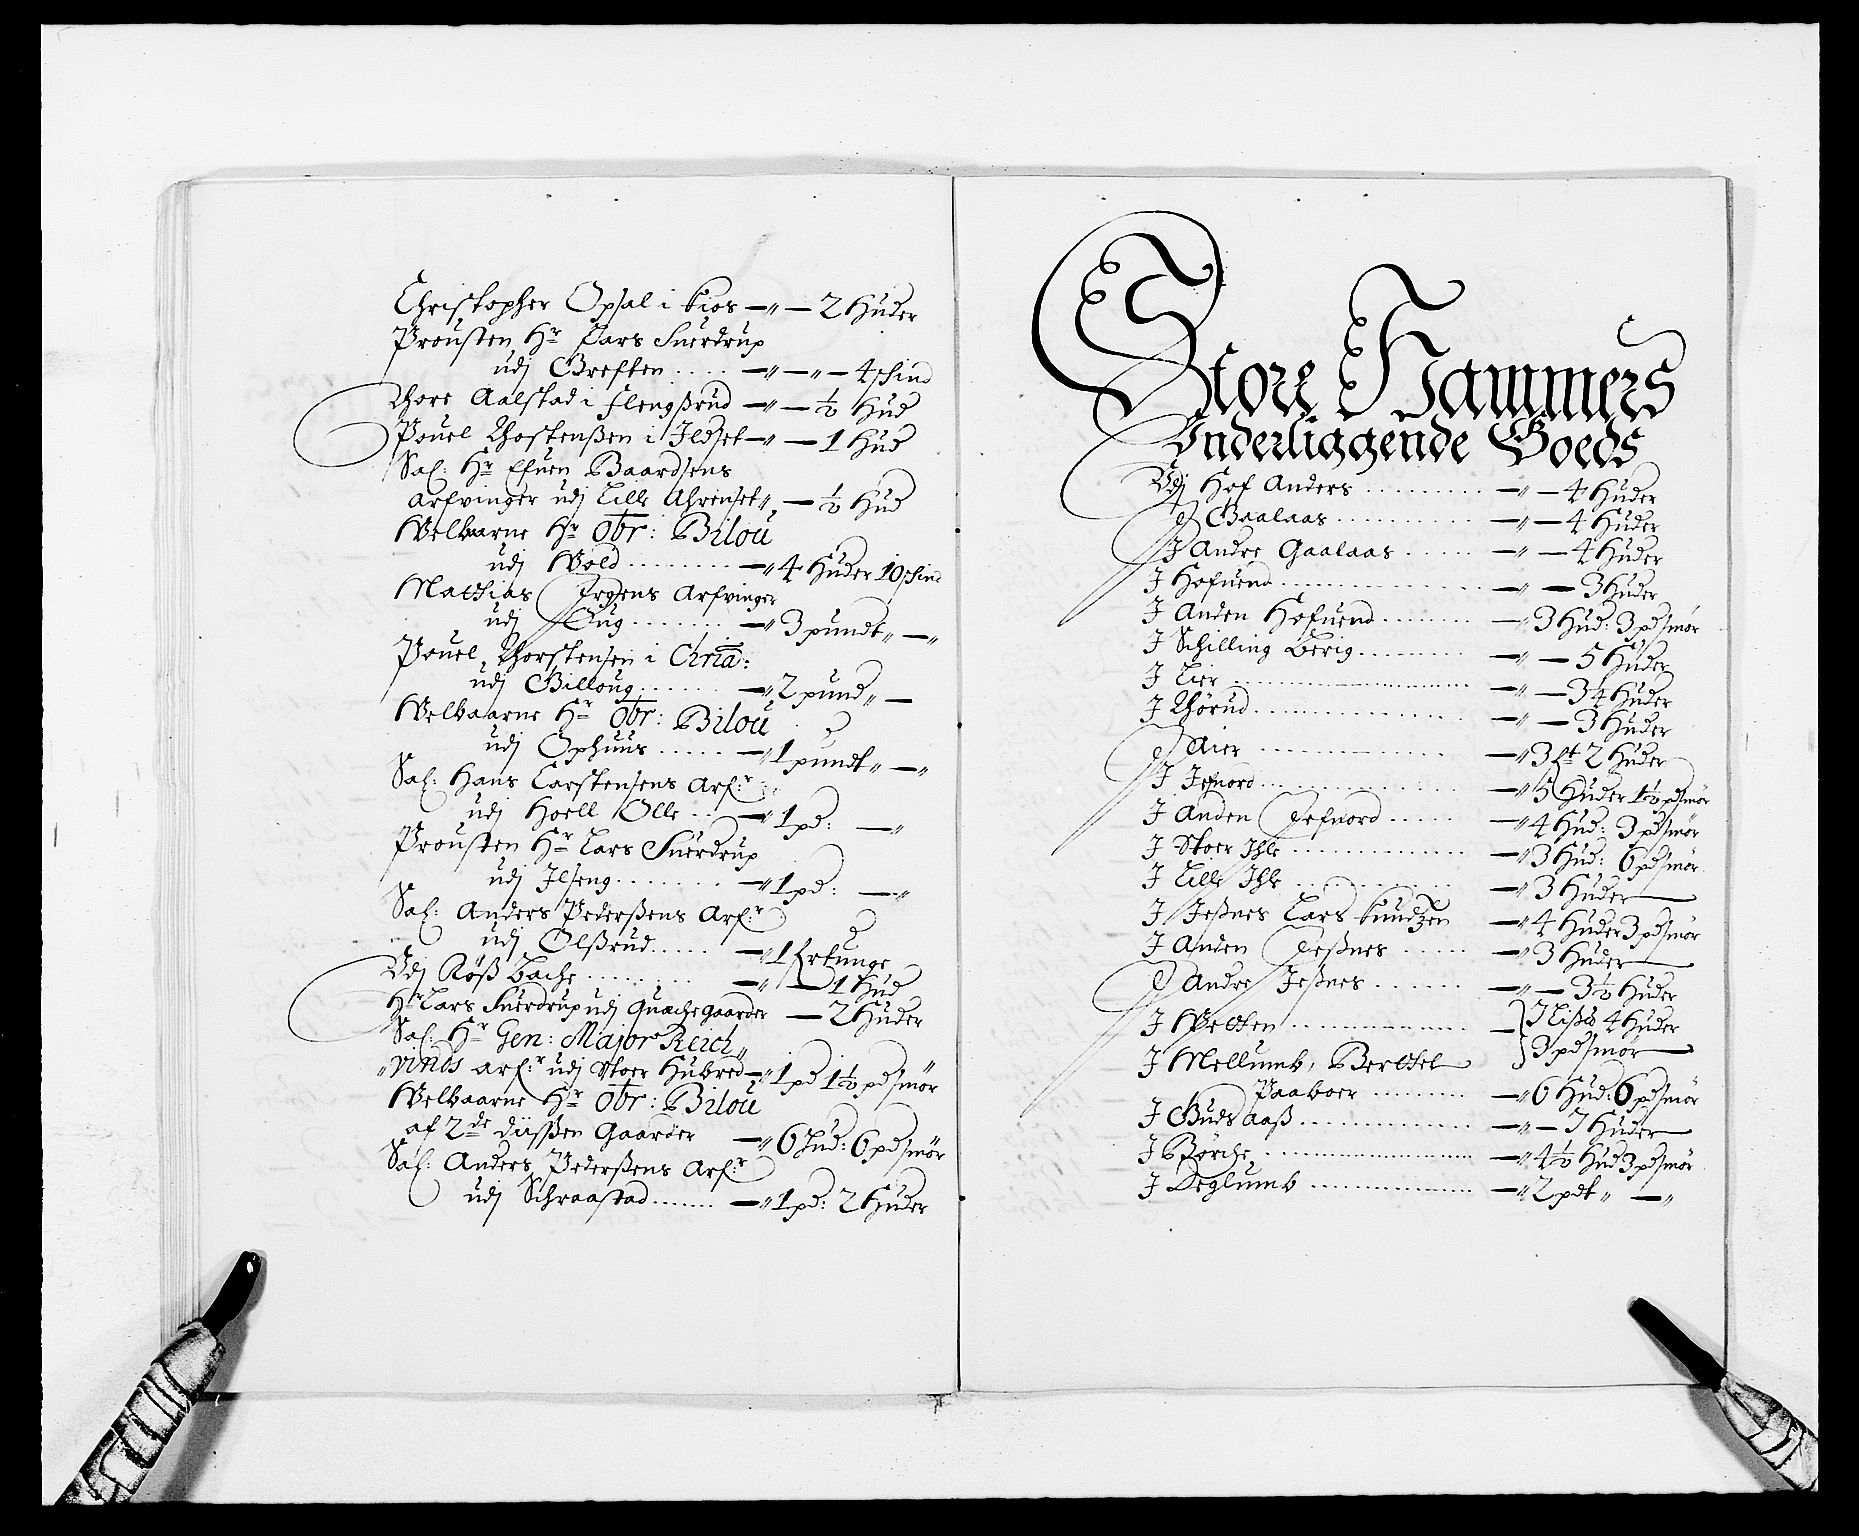 Christopher Opsal i Kios — „ — 2 Huder
Prousten Hr Lars Suerdrup
udj Greften .... — „ — „ — 4 skind
Thore Aalstad i Flengßrud — „ — ½ Hud
Pouel Thostenßen i Ildset — „ — 1 Hud
Sal: Hr Efuen Baardsens
arfvinger udj Lille Ahrenset „ — ½ Hud
Welbaarne Hr Obr: Bilou
udj Wold ......... — „ 4 Huder 10 skind
Matthias Jrgens Arfvinger
udj Oug ........ — „ 3 pundt „ — „
Pouel Thorstensen i Chria:
udj Billoug ....... — „ 2 pund „ —
Welbaarne Hr Obr: Bilou
udj Ophuus ...... — „ 1 pundt „ — „
Sal: Hans Carstensens Arf:r
udj Hoell Olle ... — „ 1 pd: — „
Prousten Hr Lars Suerdrup
udj Ilseng ........ — „ 1 pd: — „
Sal: Anders Pederßens Arf:r
udj Olßrud ...... — „ 1 Ertunge
Udj Röß Bache ......... — „ — 1 Hud
Hr Lars Suerdrup udj Quæche gaarder — 2 Huder
Sal: Hr Gen: Major Reich„
„vinds Arf:r udj Stoer Hubred — „ 1 pd 1½ pd smör
Welbaarne Hr Obr: Bilou
af 2de diißen Gaarder — „ 6 Hud: 6 pd smör
Sal: Anders Pederßens Arf:r
udj Schraastad ....... — „ 1 pd: 2 Huder
Store Hammers
Underliggende Goeds
Udj Hof Anders .......... — „ — 4 Huder
J Gaalaas ............ — „ — 4 Huder
J Andre Gaalaas ..... — „ — 4 Huder
J Hofuend ............... — „ — 3 Huder
J Anden Hofuend ........ — „ 3 Hud: 3 pd smör
J Schilling Berig ......... — „ — 5 Huder
J Lier .................. — „ — 3¼ Huder
J Thörud ................ — „ — 3 Huder
J Aier ................ — „ 3 2 Huder
J Jefnord ............... — „ 5 Huder 1½ pd smör
J Anden Jefnord ..... — „ 4 Hud: 3 pd smör
J Stoer Ihle ............. — „ 3 Hud: 6 pd smör
J Lille Ihle ............ — „ 3 Huder —
J Jeßnes Lars Knudzen — „ 4 Huder 3 pd smör
J Anden Jeßnes ...... — „ 3 Huder —
J Andre Jeßnes ....... — „ — 3½ Huder
J Wetten ............... — 4 Huder
J Mellumb, Berthel 3 pd smör —
Paaboer ......... — „ 6 Hud: 6 pd smör
J Gudsaaß ............... — „ — 7 Huder —
J Börche ................. — „ 4½ Hud 3 pd smör
J Deglumb ............... — „ 2 pdt „ — „